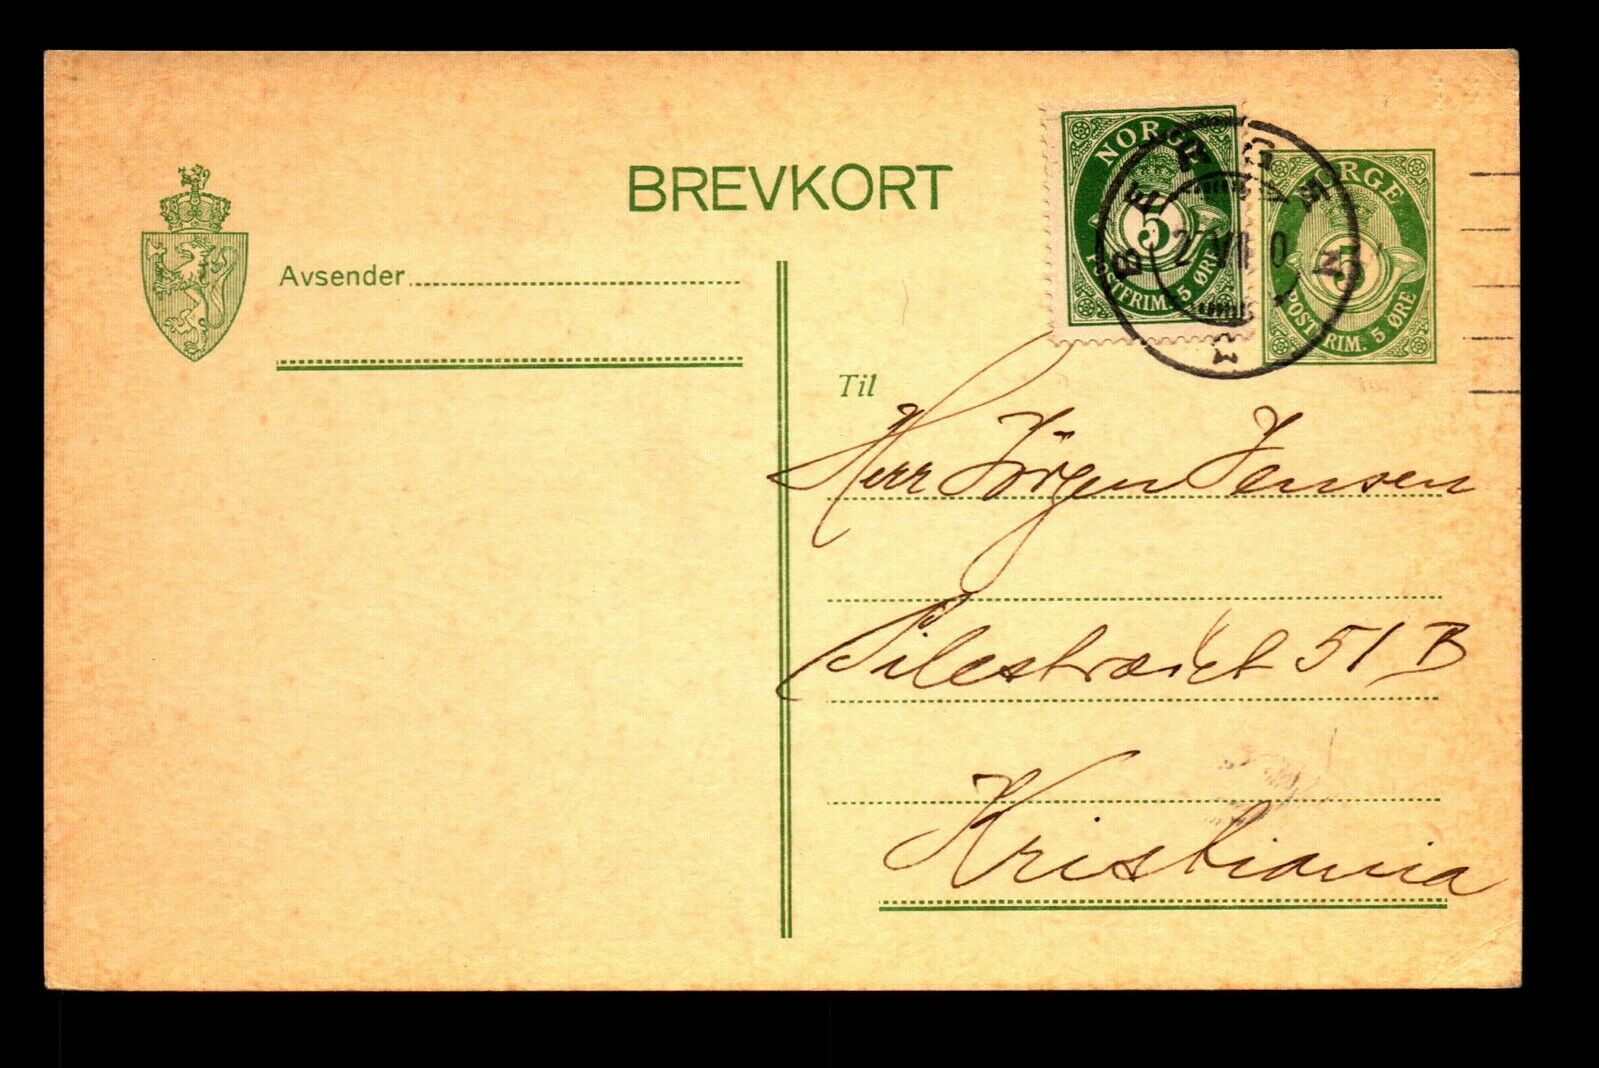 BREVKORT
Avsender
NORGE
5
POSTFRIM. 5 ØRE
NORGE
5
POSTFRIM. 5 ØRE
BERGEN
Til
Herr Jörgen Jensen
Pilestrædet 51 B
Kristiania